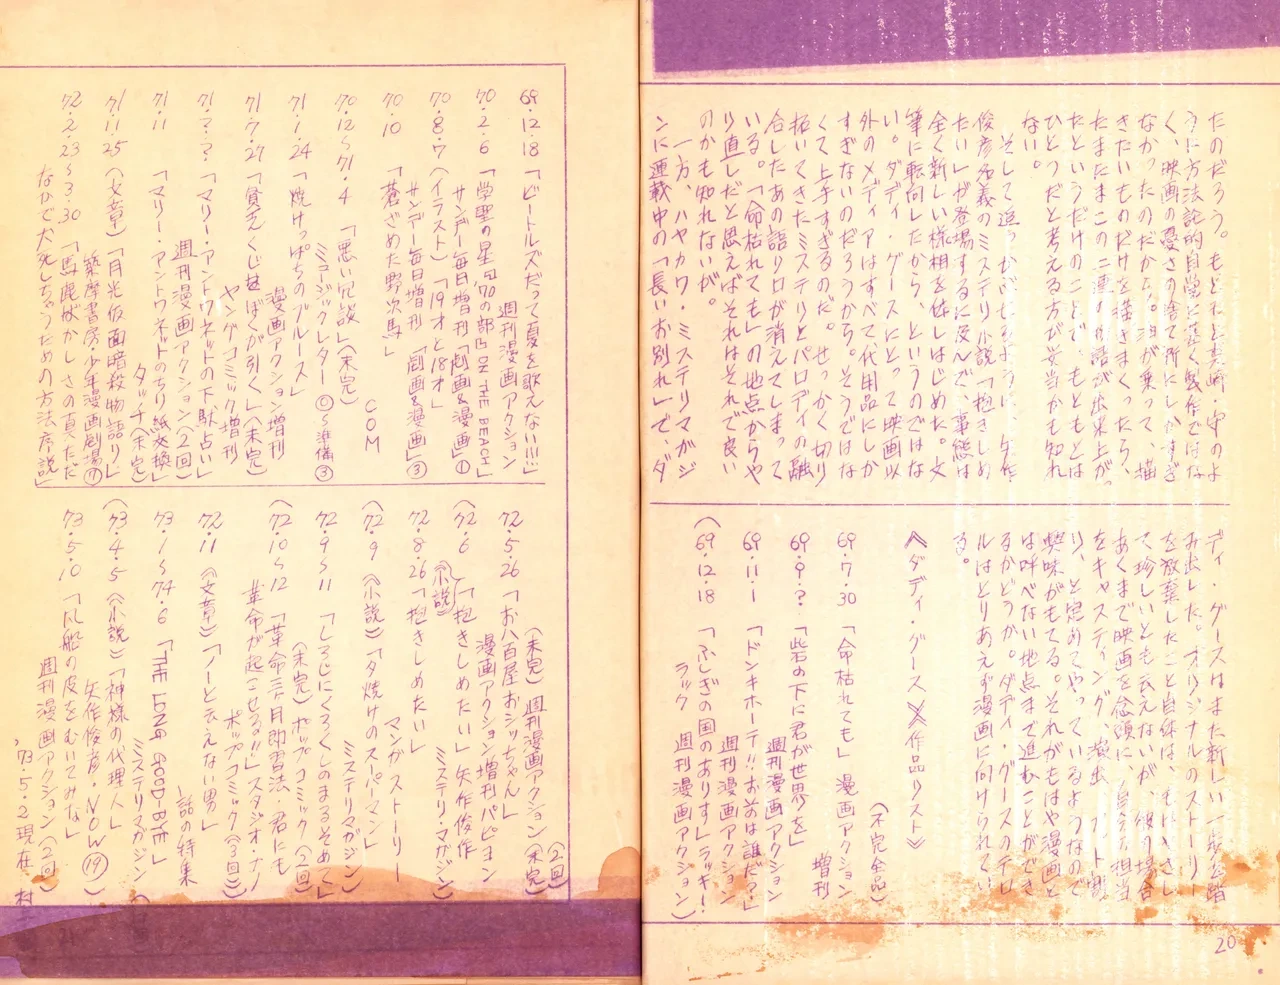 たのだろう。もともと真崎・守のよ
うに方法論的自覚に基く製作ではな
く、映画の憂さの捨て所にしかすぎ
なかったのだから。油が乗って、描
きたいものだけを描きまくったら、
たまたまこの二連の 話が出来上がっ
たというだけのことで、もともとは
ひとつだと考える方が妥当かも知れ
ない。
そして追っかぶせるように、矢作
俊彦名義のミステリ小説「抱きしめ
たい」が登場するに及んで、事態は
全く新しい様相を呈しはじめた。文
筆に転向したから、というのではな
い。ダディ・グースにとって映画以
外のメディアはすべて代用品にしか
すぎないのだろうから。そうではな
くて上手すぎるのだ。せっかく切り
拓いてきたミステリとパロディの融
合したあの語り口が消えてしまって
いる。「命枯れても」の地点からや
り直しだと思えばそれはそれで良い
のかも知れないが。
一方、ハヤカワ・ミステリマガジ
ンに連載中の「長いお別れ」で、ダ
ディ・グースはまた新しい一歩を踏
み出した。オリジナルのストーリー
を放棄したこと自体は、
て珍しいとも云えないが、彼の場合
あくまで映画を念頭に、自分で担当
をキャスティング、演出、 ト割
り、と定めてやっているようなので
興味がもてる。それがもはや漫画と
は呼べない地点まで進むことができ
るかどうか。ダディ・グースのテロ
ルはとりあえず漫画に向けられてい
る。
《ダディ・グース》作品リスト》
(不完全品)
69・7・30 「命枯れても」 漫画アクション
増刊
69・9・? 「砦の下に君が世界を」
週刊漫画アクション
69・11・1 「ドンキホーテ!!おまえは誰だ?」
週刊漫画アクション
(69・12・18 「ふしぎの国のありす」ラッキー・
ラック 週刊漫画アクション)
69・12・18 「ビートルズだって夏を歌えない!!!」
週刊漫画アクション
70・2・6 「学聖の星旬'70の部色ON THE BEACH」
サンデー毎日増刊「劇画&漫画」①
70・8・7 (イラスト)「19才と18才」
サンデー毎日増刊「劇画&漫画」③
70・10 「蒼ざめた野次馬」
COM
70・12~71・4 「悪い冗談」(未完)
ミュージックレター◎~準備③
71・1・24 「焼けっぱちのブルース」
漫画アクション増刊
71・7・27 「貧乏くじはぼくが引く」(未完)
ヤングコミック増刊
71・?・? 「マリー・アントワネットの下駄占い」
週刊漫画アクション(2回)
71・11 「マリー・アントワネットのちり紙交換」
タッチ(未完)
71・11・25 (文章)「月光仮面暗殺物語り」
筑摩書房・少年漫画劇場⑦
72・2・23~3・30 「馬鹿状かしさの真ただ
なかで犬死しちゃうための方法序説」
(未完) 週刊漫画アクション(2回)
72・5・26 「お八百屋おシッちゃん」(未完)
漫画アクション増刊パピヨン
(72・6 (小説)「抱きしめたい」矢作俊作
ミステリ・マガジン)
72・8・26 「抱きしめたい」
マンガストーリー
(72・9 (小説)「夕焼けのスーパーマン」
ミステリマガジン)
72・9~11 「しろじにくろくしのまるそめて」
(未完) ポップコミック(2回)
(72・10~12 「革命三ヶ月即習法・君にも
革命が起こせる!!」スタジオ・ナノ
ポップコミック(3回))
72・11 (文章)「ノーと云えない男」
話の特集
73・1~74・6 「THE LONG GOOD-BYE」
ミステリマガジン
(73・4・5 (小説)「神様の代理人」
矢作俊彦・NOW⑲)
73・5・10 「風船の皮をむいてみな」
週刊漫画アクション(2回)
'73・5・2現在 村
20
21